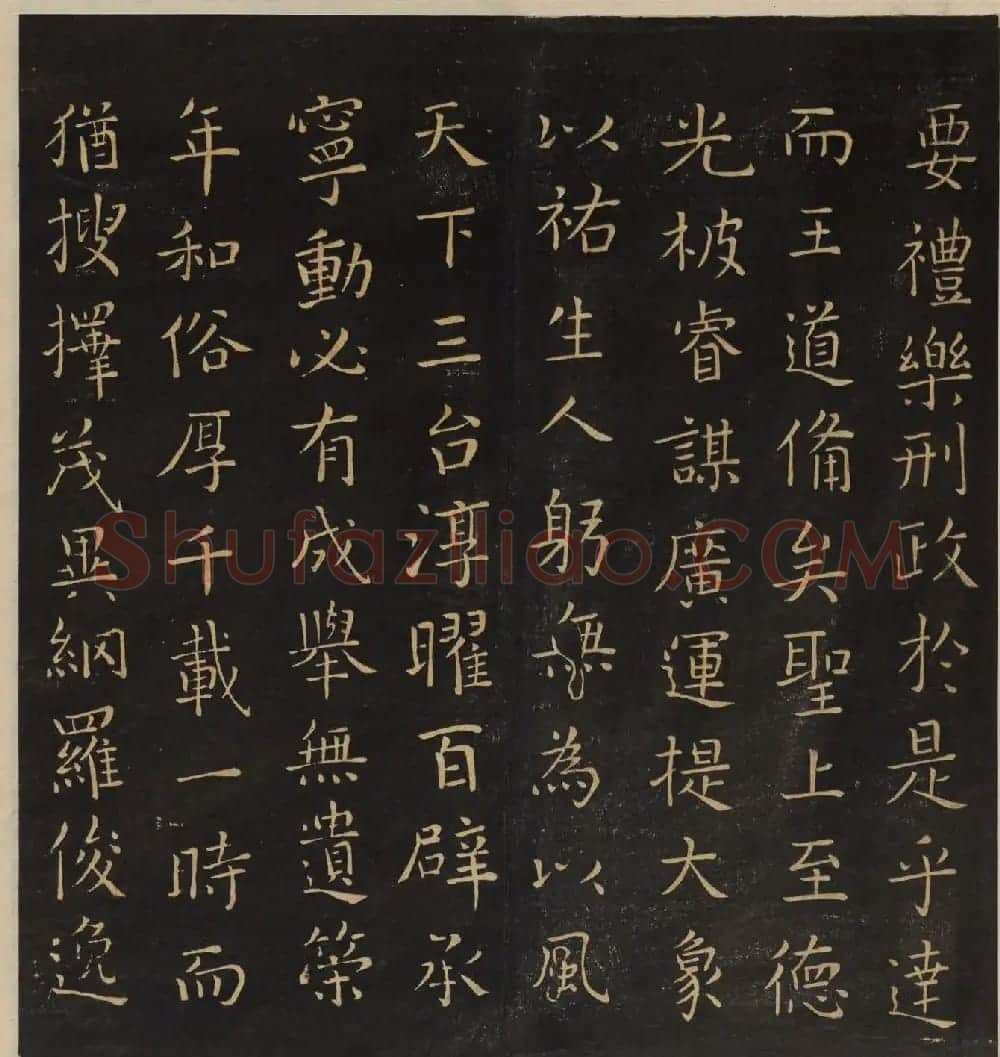 要禮樂刑政於是乎達
而王道備矣聖上至德
光被睿謀廣運提大象
以祐生人躬無為以風
天下三台淳曜百辟承
寧動必有成舉無遺策
年和俗厚千載一時而
猶搜擇茂異網羅俊逸
Shufaziliao.COM